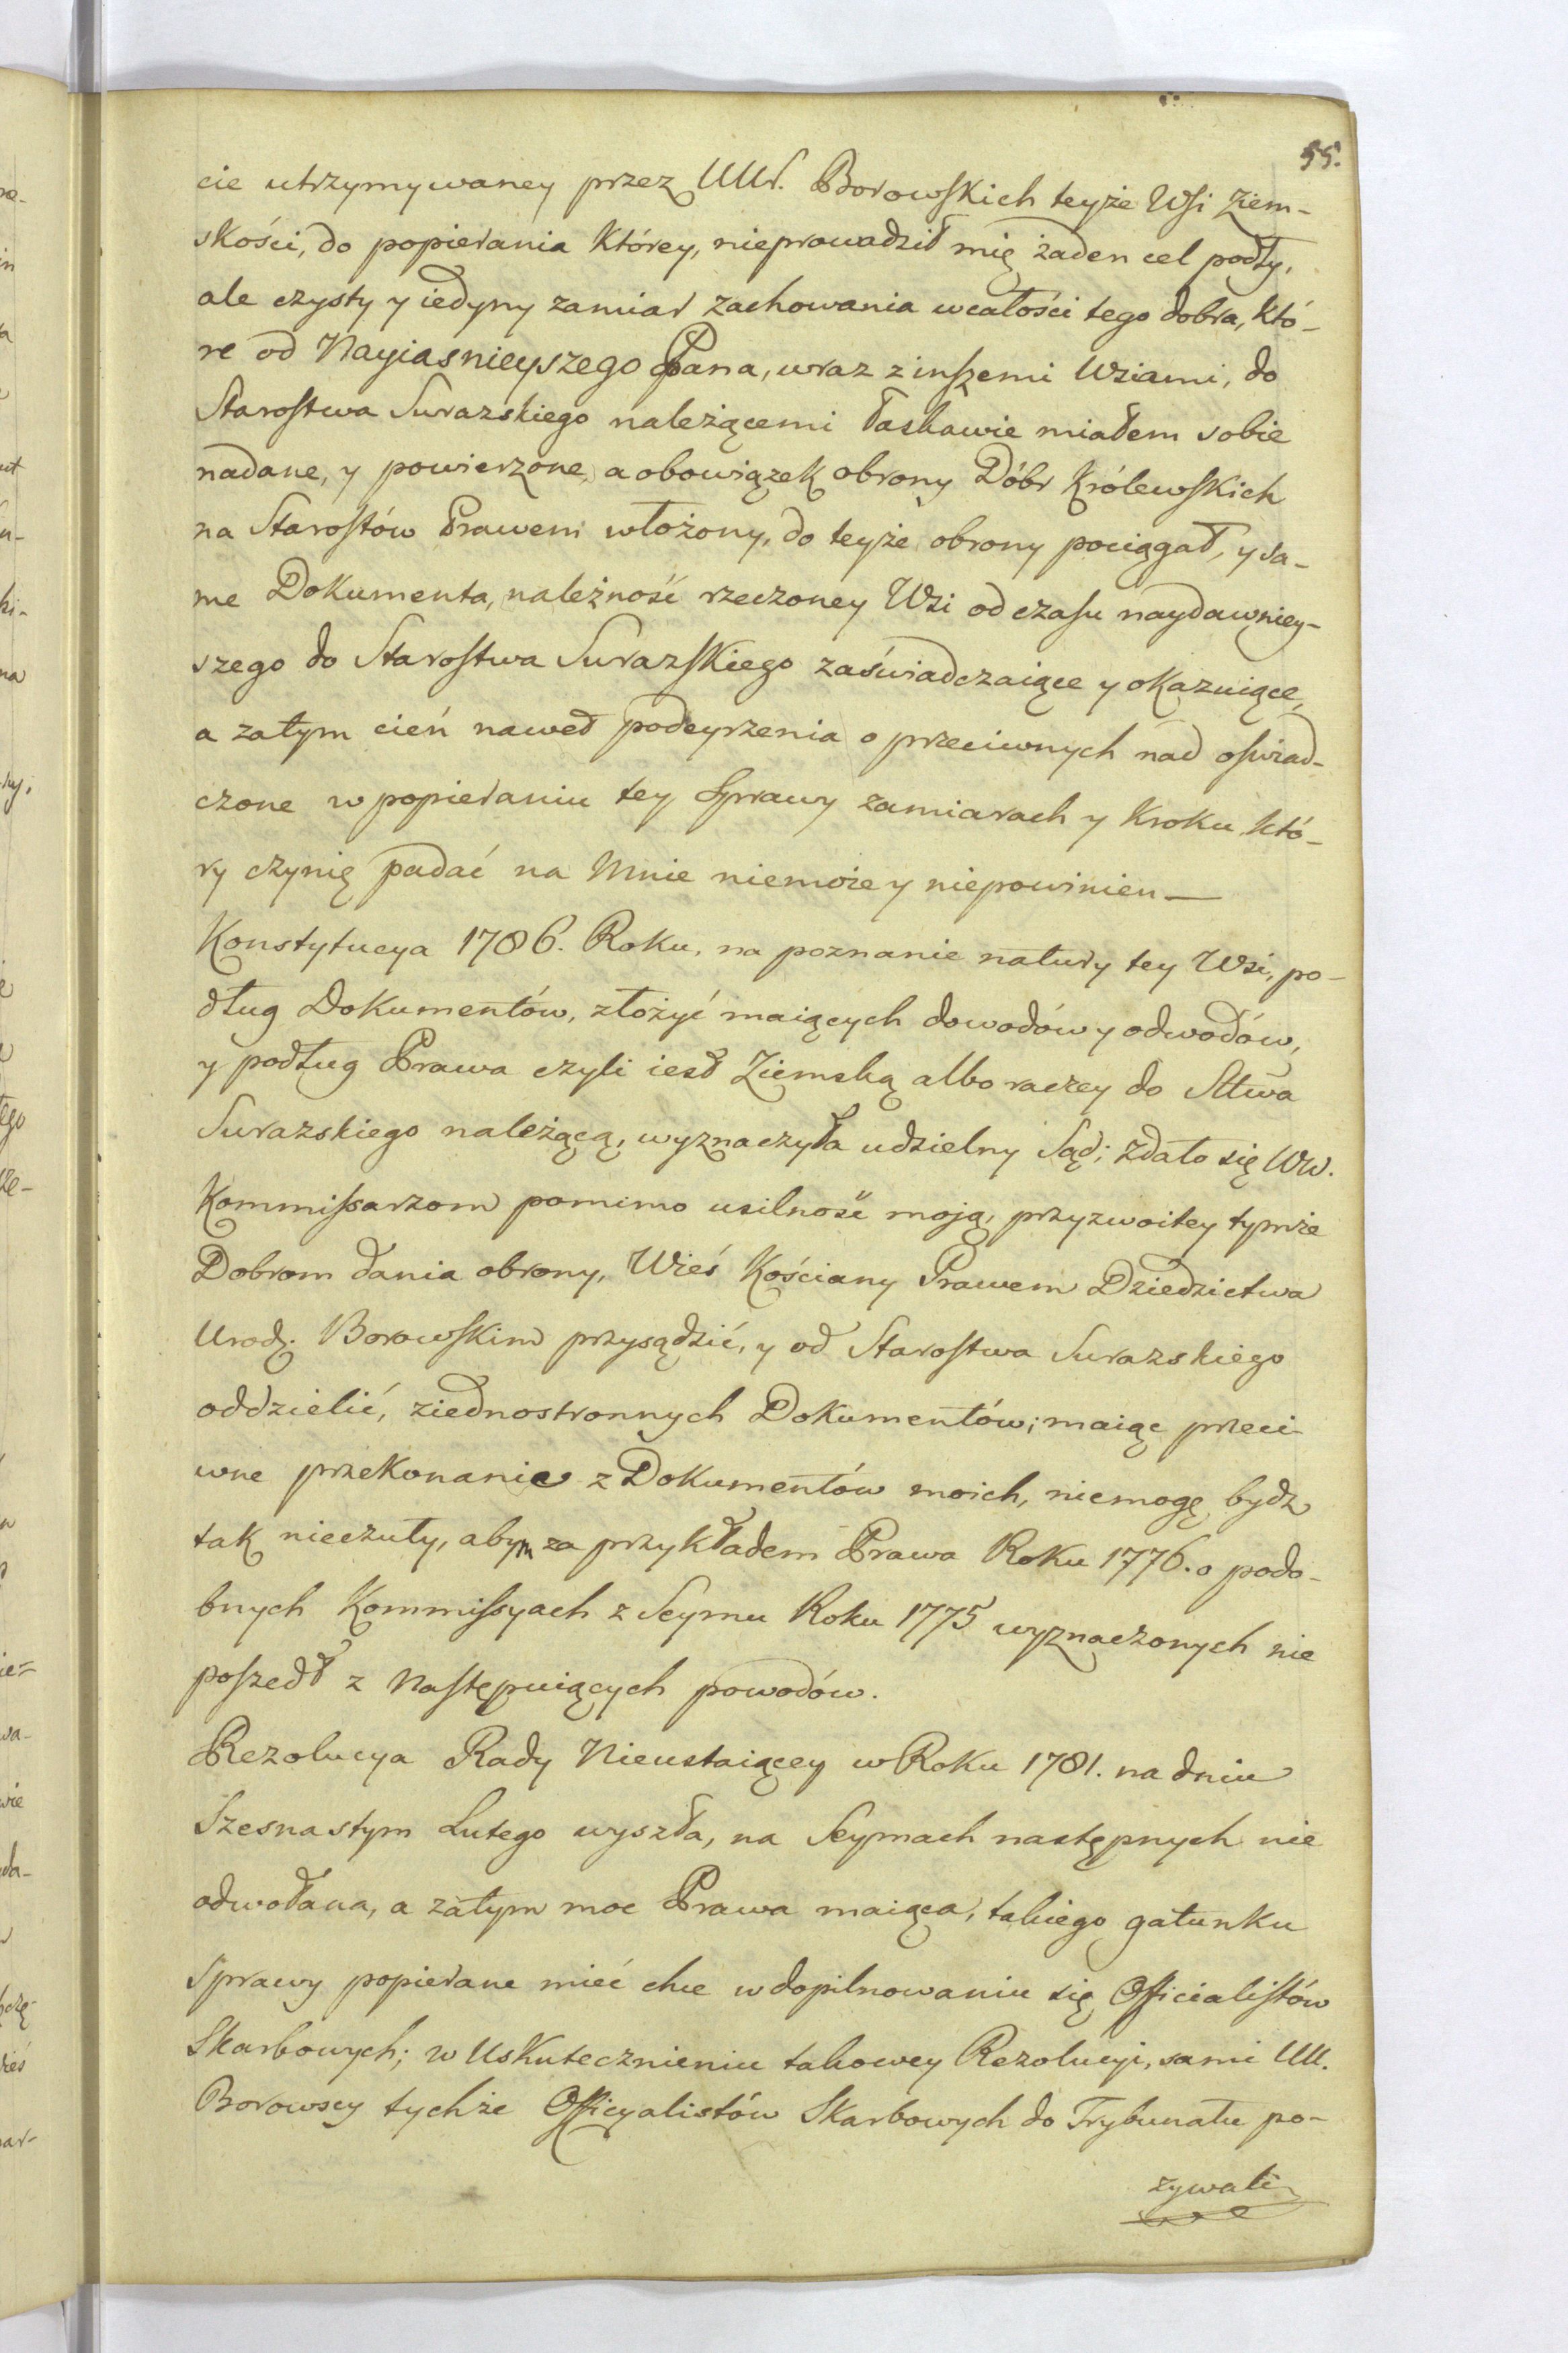 55.
cie utrzymywaney przez UUr. Borowskich teyże Wsi Ziem-
skości, do popierania którey, nieprowadził mię żaden cel podły,
ale czysty y iedyny zamiar zachowania wcałości tego dobra, któ-
re od Nayiasnieyszego Pana, wraz z inszemi Wsiami, do
Starostwa Surazskiego należącemi łaskawie miałem sobie
nadane, y powierzone, a obowiązek obrony Dóbr Królewskich
na Starostów Prawem włożony, do teyże obrony pociągał, y sa-
me Dokumenta, należność rzeczoney Wsi od czasu naydawniey-
szego do Starostwa Surazskiego zaświadczaiące y okazuiące,
a zatym cień nawet podeyrzenia o przeciwnych nad oswiad-
czone w popieraniu tey Sprawy zamiarach y kroku któ-
ry czynię padać na Mnie niemoże y niepowinien—
Konstytucya 1786. Roku, na poznanie natury tey Wsi, po-
dług Dokumentów, złożyć maiących dowodów y odwodów,
y podług Prawa czyli iest Ziemską albo raczey do Sttwa
Surazskiego należącą, wyznaczyła udzielny Sąd; zdało się WW.
Kommissarzom pomimo usilność moją, przyzwoitey tymże
Dobrom dania obrony, Wieś Kościany Prawem Dziedzictwa
Urodz. Borowskim przysądzić, y od Starostwa Surazskiego
oddzielić, ziednostronnych Dokumentów; maiąc przeci-
wne przekonanie z Dokumentów moich, niemogę bydz
tak nieczuły, abym za przykładem Prawa Roku 1776. o podo-
bnych Kommissyach z Seymu Roku 1775 wyznaczonych nie
poszedł z następuiących powodów.
Rezolucya Rady Nieustaiącey w Roku 1781. na dniu
Szesnastym Lutego wyszła, na Seymach następnych nie
odwołana, a zatym moc Prawa maiąca, takiego gatunku
sprawy popierane mieć chce w dopilnowaniu się Officialistów
Skarbowych; w uskutecznieniu takowey Rezolucyi, sami UU.
Borowscy tychże Officyalistów Skarbowych do Trybunału po-
zywali